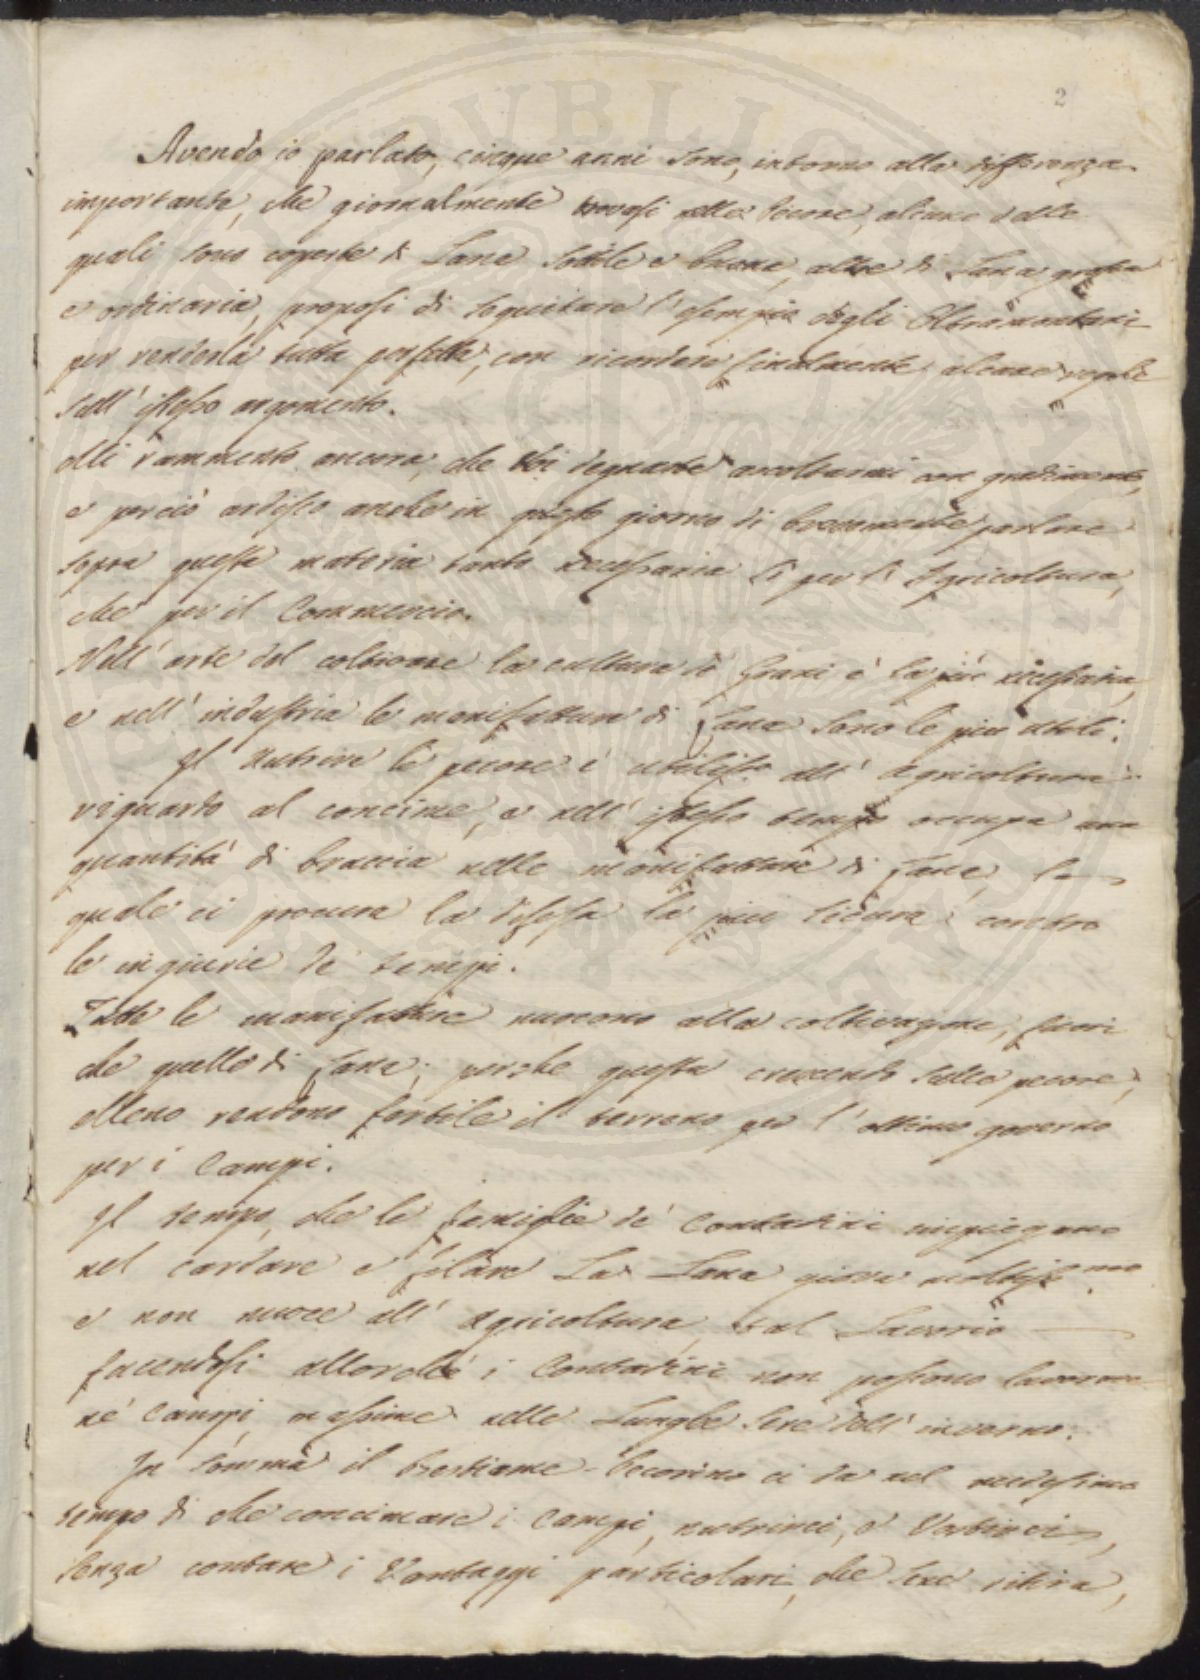 2
Avendo io parlato, cinque anni sono, intorno alla differenza
importante, che giornalmente trovasi nelle Pecore, alcune delle
quali sono coperte di Lana sottile e buona, altre di Lana grossa
e ordinaria, proposi di seguitare l'esempio degli Oltramontani
per renderla tutta perfetta, con ricordare finalmente alcune regole
sull'istesso argomento.
Mi rammento ancora, che Voi degnaste ascoltarmi con gradimento,
e perciò ardisco anche in questo giorno di brevemente parlare
sopra questa materia tanto necessaria sì per l'Agricoltura,
che per il Commercio.
Nell'arte del coltivare la cultura de' Grani è la più necessaria,
e nell'industria le manifatture di Lana sono le più utili.
Il nutrire le pecore è utiliss.o all'Agricoltura
riguardo al concime, e nell'istesso tempo occupa una
quantità di braccia nelle manifatture di Lana, la
quale ci procura la difesa la più sicura contro
le ingiurie de' tempi.
Tutte le manifatture nuocono alla coltivazione, fuori
che quelle di Lana; perchè questa crescendo sulle pecore,
elleno rendono fertile il terreno per l'ottimo governo
per i Campi.
Il tempo, che le famiglie de' Contadini impiegano
nel cardare e filare La Lana giova moltiss.mo
e non nuoce all'Agricoltura, tal Lavorio
facendosi allorchè i Contadini non possono lavorare
ne' Campi, massime nelle Lunghe sere dell'inverno.
In somma il bestiame Pecorino ci dà nel medesimo
tempo di che concimare i Campi, nutrirci, e Vestirci,
senza contare i Vantaggi particolari, che se ne ritira,